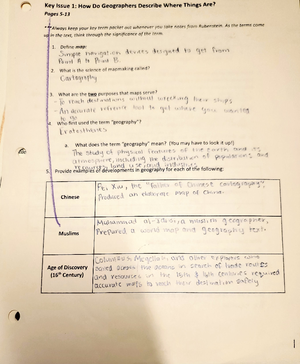 Key Issue 1: How Do Geographers Describe Where Things Are?
Pages 5-13
***Always keep your key term packet out whenever you take notes from Rubenstein. As the terms come
up in the text, think through the significance of the term.
1. Define map:
Simple navigation devices designed to get from
Point A to Point B.
2. What is the science of mapmaking called?
Cartography
3. What are the two purposes that maps serve?
- To reach destinations without wrecking their ships
- An accurate reference tool to get where your
to go
4. Who first used the term "geography"?
Eratosthenes
a. What does the term "geography" mean? (You may have to look it up!)
The study of physical features of the earth and its
atmosphere, including the distribution of populations, and
resources, land use, and industries
5. Provide examples of developments in geography for each of the following:
Chinese
Pei Xiu, the "father of Chinese cartography"
Produced an elaborate map of China.
Muslims
Muhammad al-Idrisi, a muslim geographer,
Prepared a world map and geography text
Age of Discovery
(16th Century)
Columbus, Magellan, and other explorers who
sailed across the oceans in search of trade routes
and resources in the 15th & 16th centuries required
accurate maps to reach their destination safely